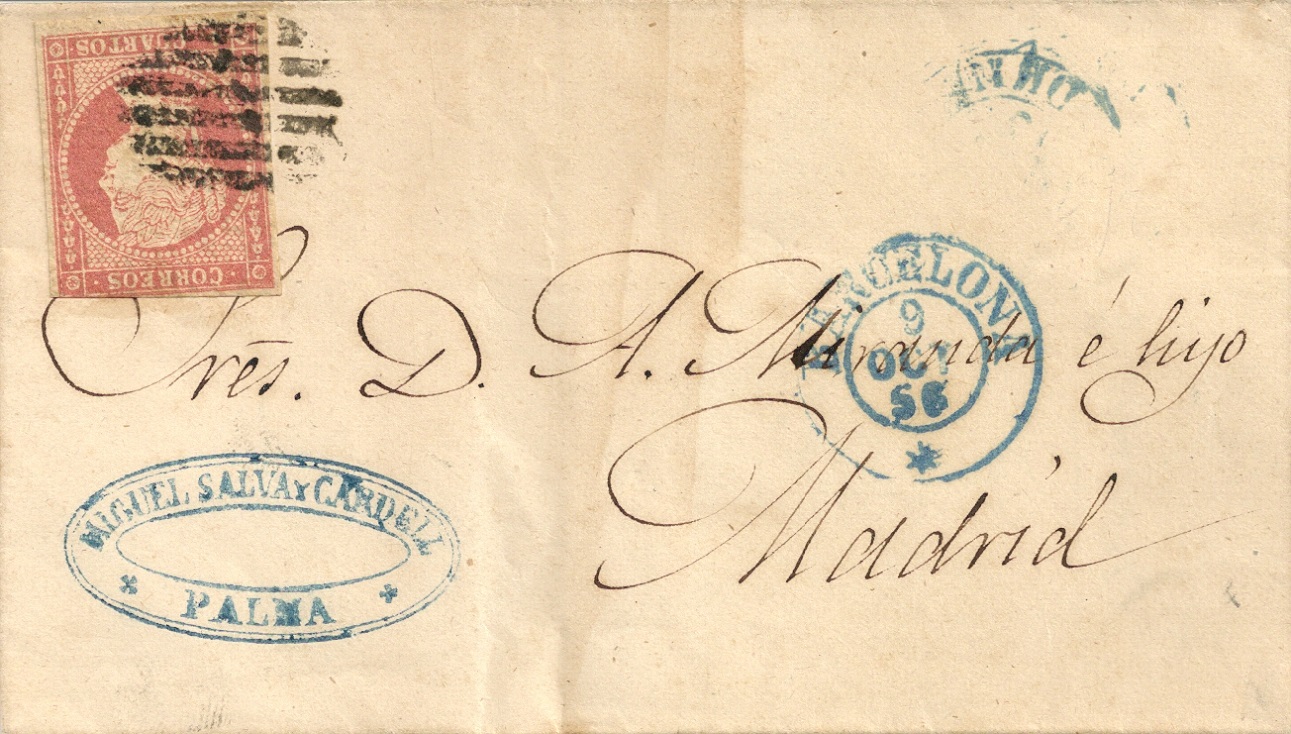 CORREOS
CUARTOS
Sres. D. A. Miranda é hijo
Madrid
BARCELONA
9
OCT
56
MIGUEL SALVA Y CARDELL
PALMA